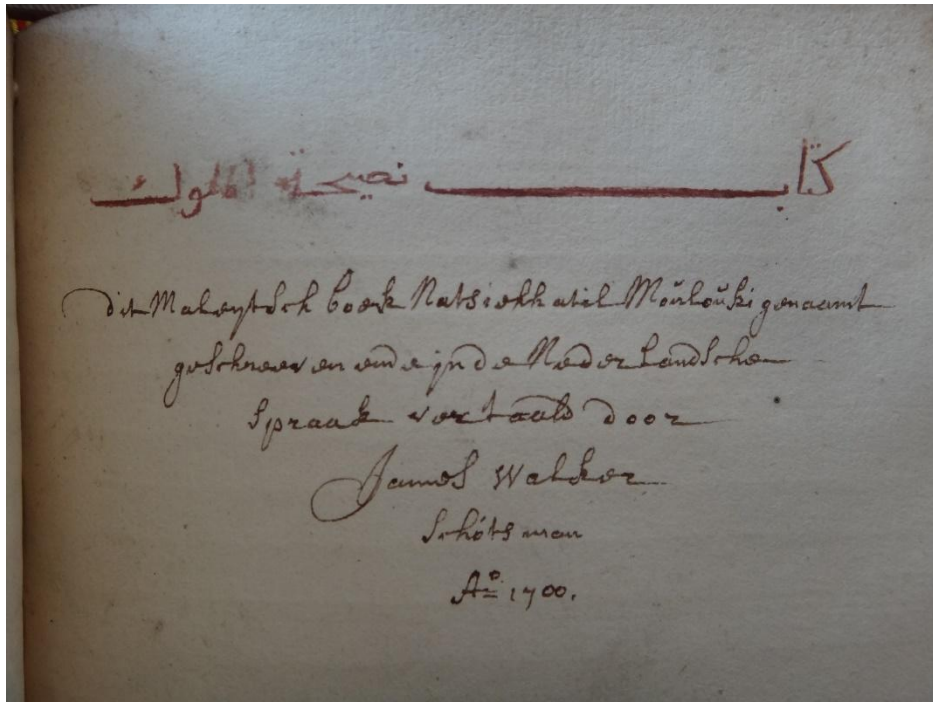 كتاب نصيحة الملوك
dit Maleytsch boek Natsiehhatil Moulouki genaamt
geschreeven ende in de Nederlandsche
spraak vertaald door
James Walker
Schotsman
Aº 1700.